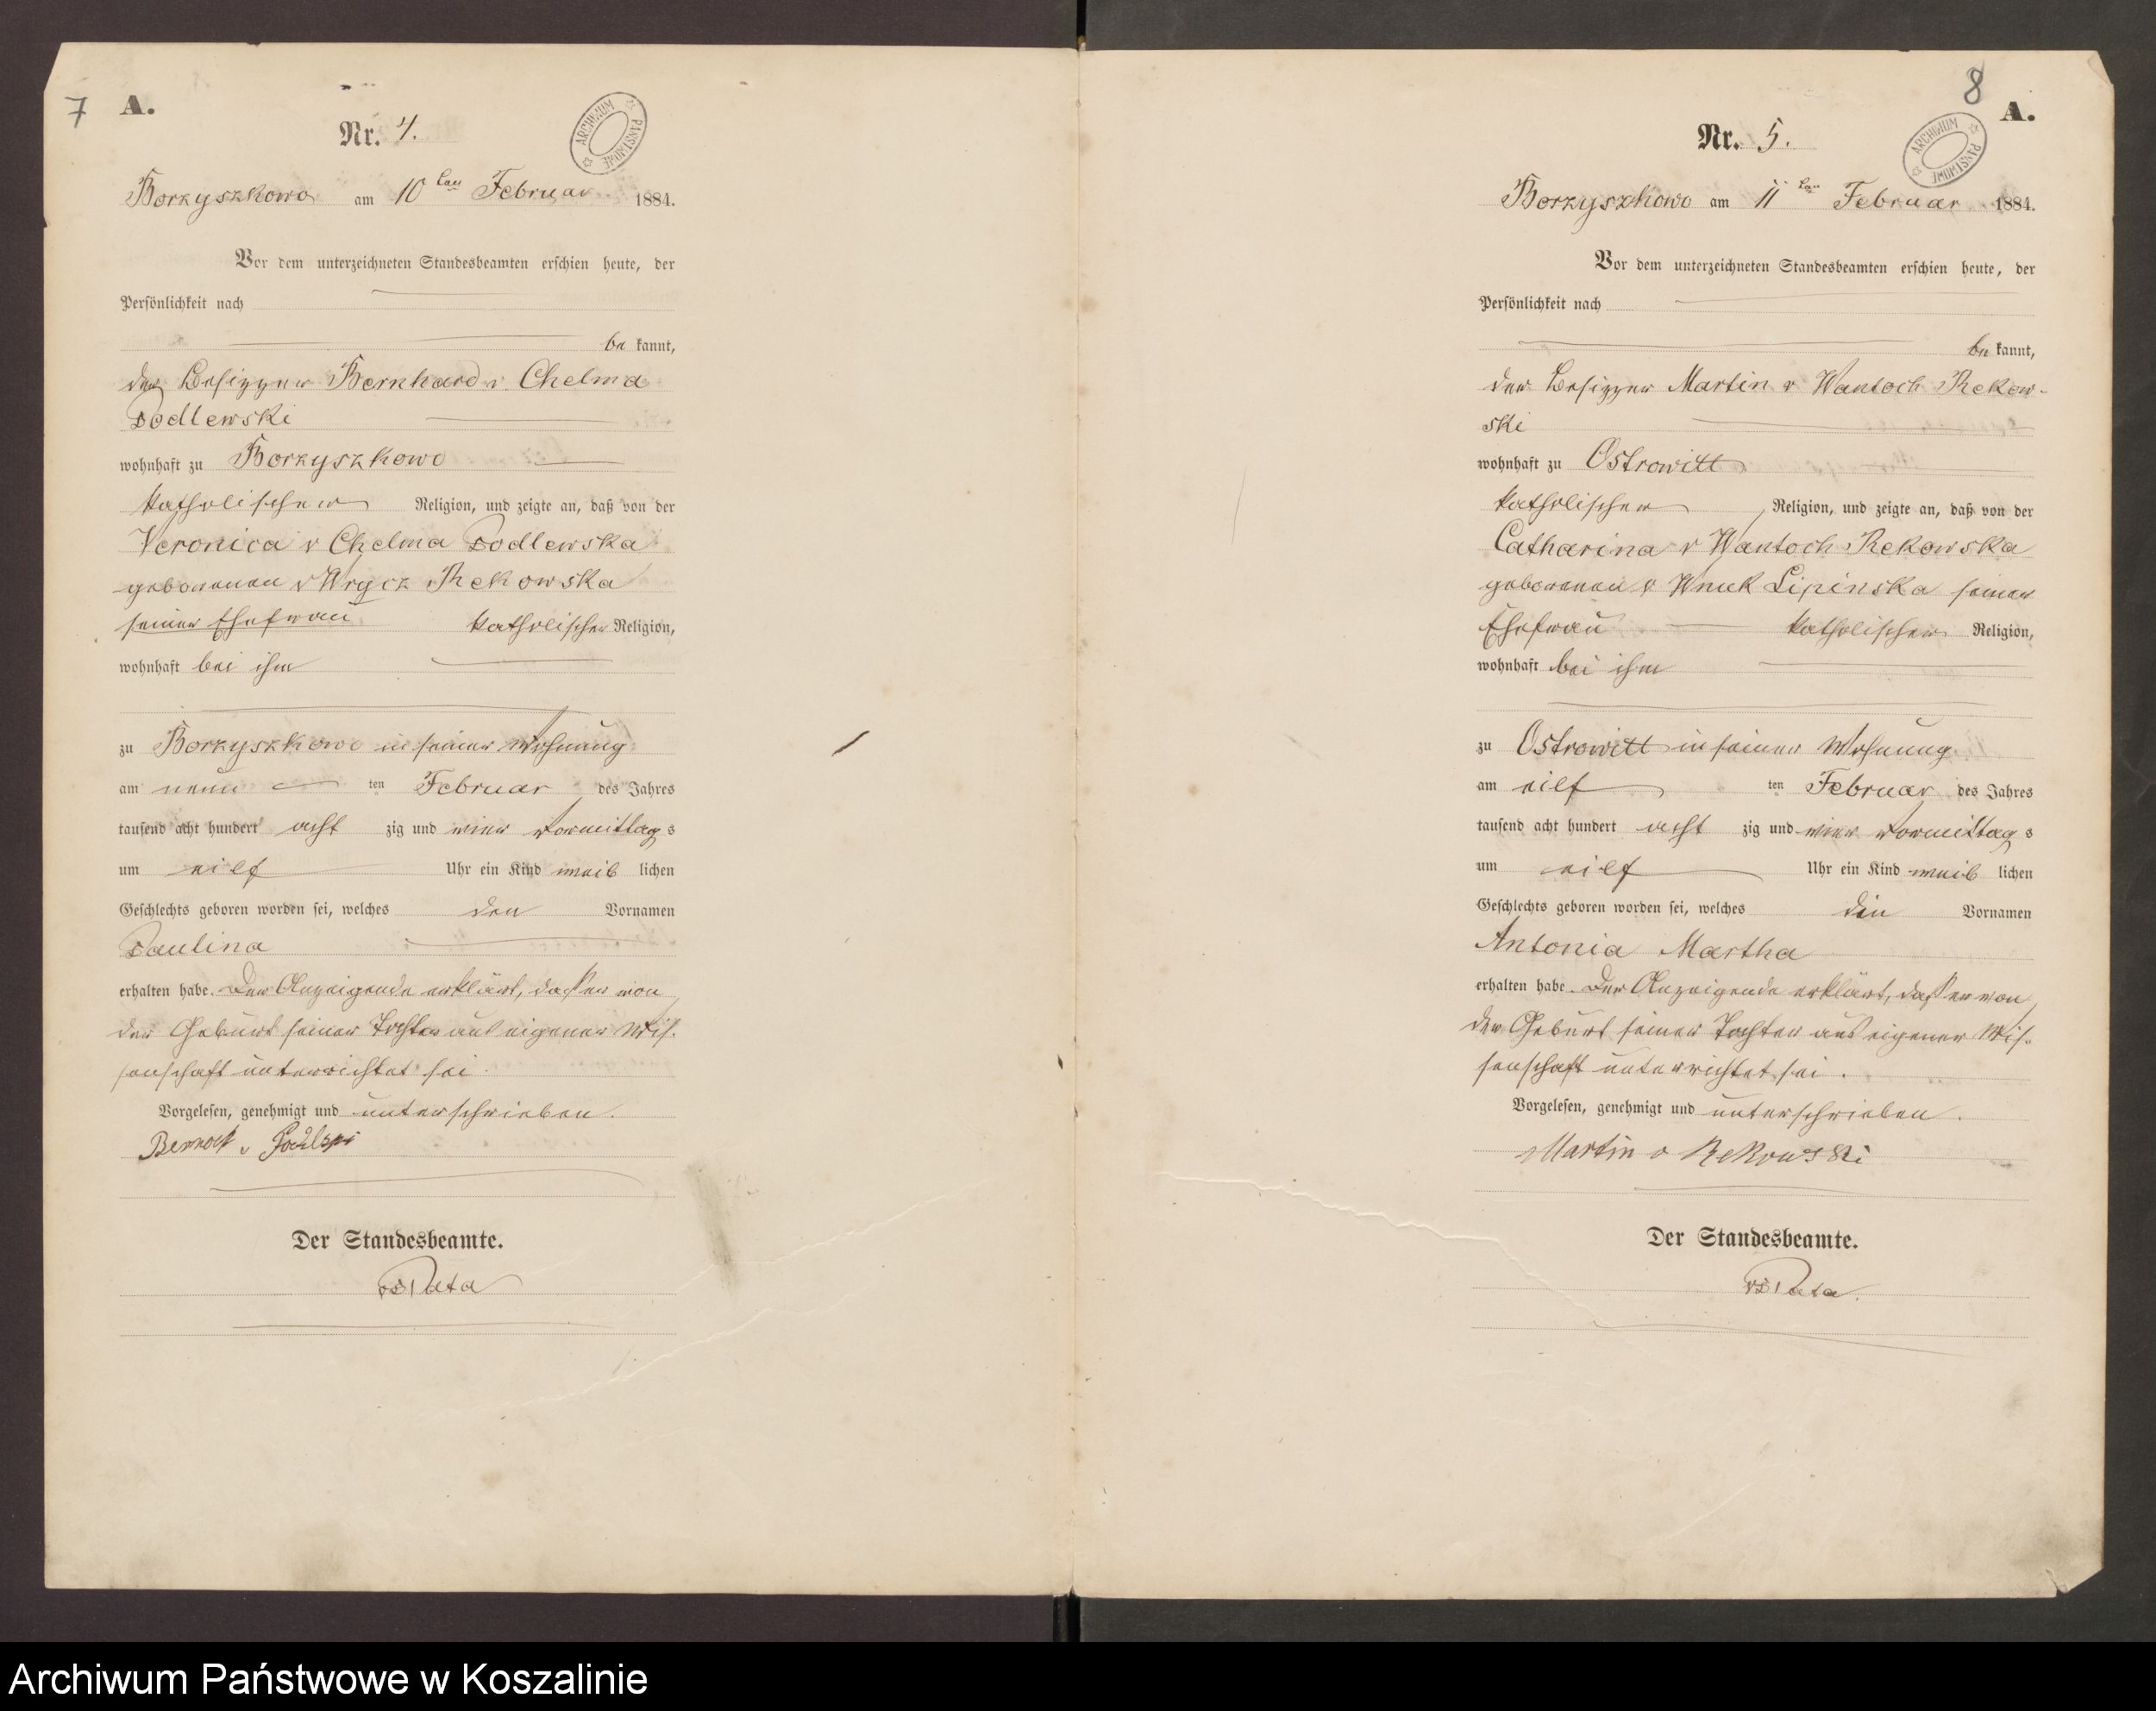 7
A.
Nr. 4.
ARCHIWUM PAŃSTWOWE
Borzyszkowo am 10ten Februar 1884.
Vor dem unterzeichneten Standesbeamten erschien heute, der
Persönlichkeit nach
be kannt,
der Besitzer Bernhard v Chelma
Podlewski
wohnhaft zu Borzyszkowo
katholischer Religion, und zeigte an, daß von der
Veronica v Chelma Podlewska
geborenen v Wrycz Rekowska
seiner Ehefrau katholischer Religion,
wohnhaft bei ihm
zu Borzyszkowo in seiner Wohnung
am neun ten Februar des Jahres
tausend acht hundert acht zig und vier Vormittag s
um eilf Uhr ein Kind weib lichen
Geschlechts geboren worden sei, welches den Vornamen
Paulina
erhalten habe. Der Anzeigende erklärt, daß er von
der Geburt seiner Tochter aus eigener Wis-
senschaft unterrichtet sei.
Vorgelesen, genehmigt und unterschrieben.
Der Standesbeamte.
8
A.
Nr. 5.
ARCHIWUM PAŃSTWOWE
Borzyszkowo am 11ten Februar 1884.
Vor dem unterzeichneten Standesbeamten erschien heute, der
Persönlichkeit nach
be kannt,
der Besitzer Martin v Wantoch Rekow-
ski
wohnhaft zu Ostrowitt
katholischer Religion, und zeigte an, daß von der
Catharina v Wantoch Rekowska
geborenen v Wnuk Lipinska seiner
Ehefrau katholischer Religion,
wohnhaft bei ihm
zu Ostrowitt in seiner Wohnung
am eilf ten Februar des Jahres
tausend acht hundert acht zig und vier Vormittag s
um eilf Uhr ein Kind weib lichen
Geschlechts geboren worden sei, welches die Vornamen
Antonia Martha
erhalten habe. Der Anzeigende erklärt, daß er von
der Geburt seiner Tochter aus eigener Wis-
senschaft unterrichtet sei.
Vorgelesen, genehmigt und unterschrieben.
Martin v Rekowski
Der Standesbeamte.
Archiwum Państwowe w Koszalinie